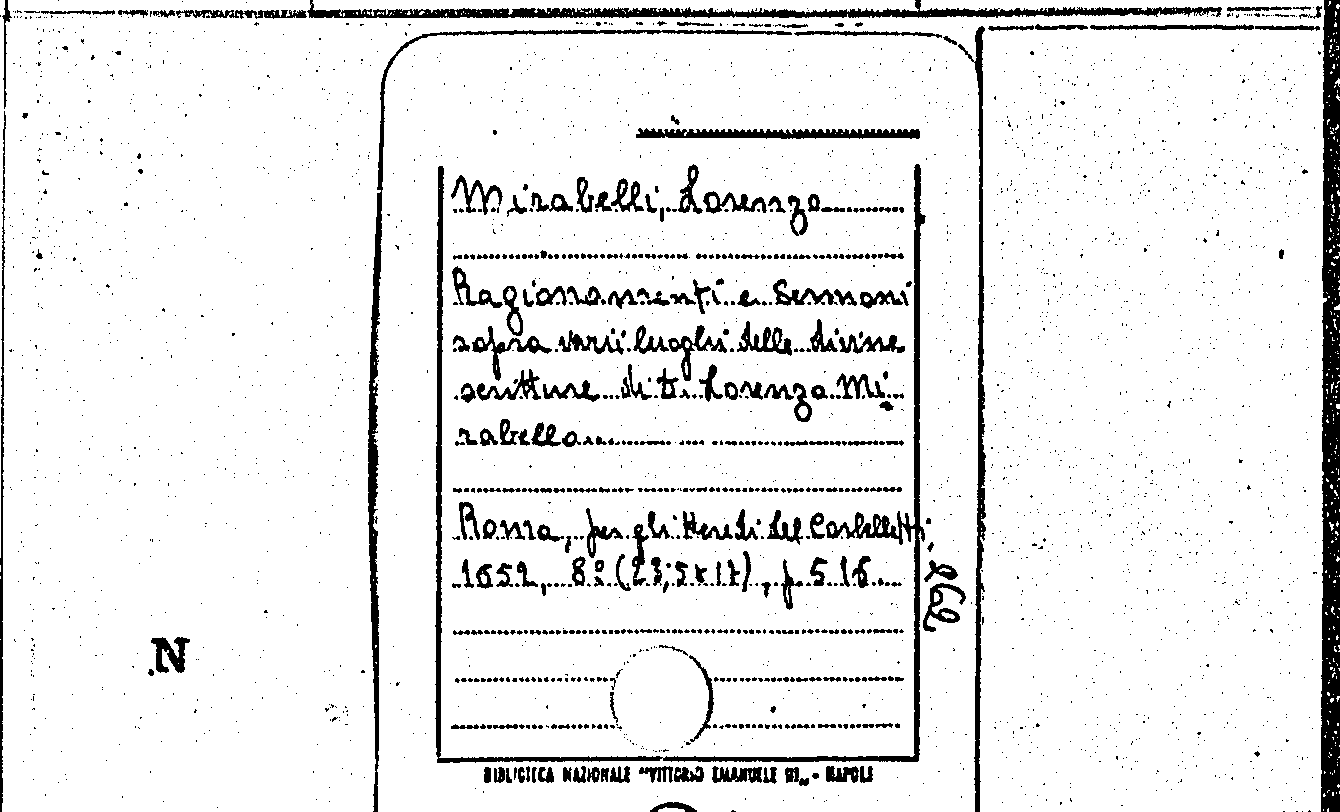 Mirabelli, Lorenzo
Ragionamenti e Sermoni
sopra varii luoghi delle divine
scritture di Lorenzo Mi-
rabello...
Roma, per gli Heredi del Corbelletti,
1652, 8º (23,5x17), p. 516.
N
BIBLIOTECA NAZIONALE "VITTORIO EMANUELE III" - NAPOLI